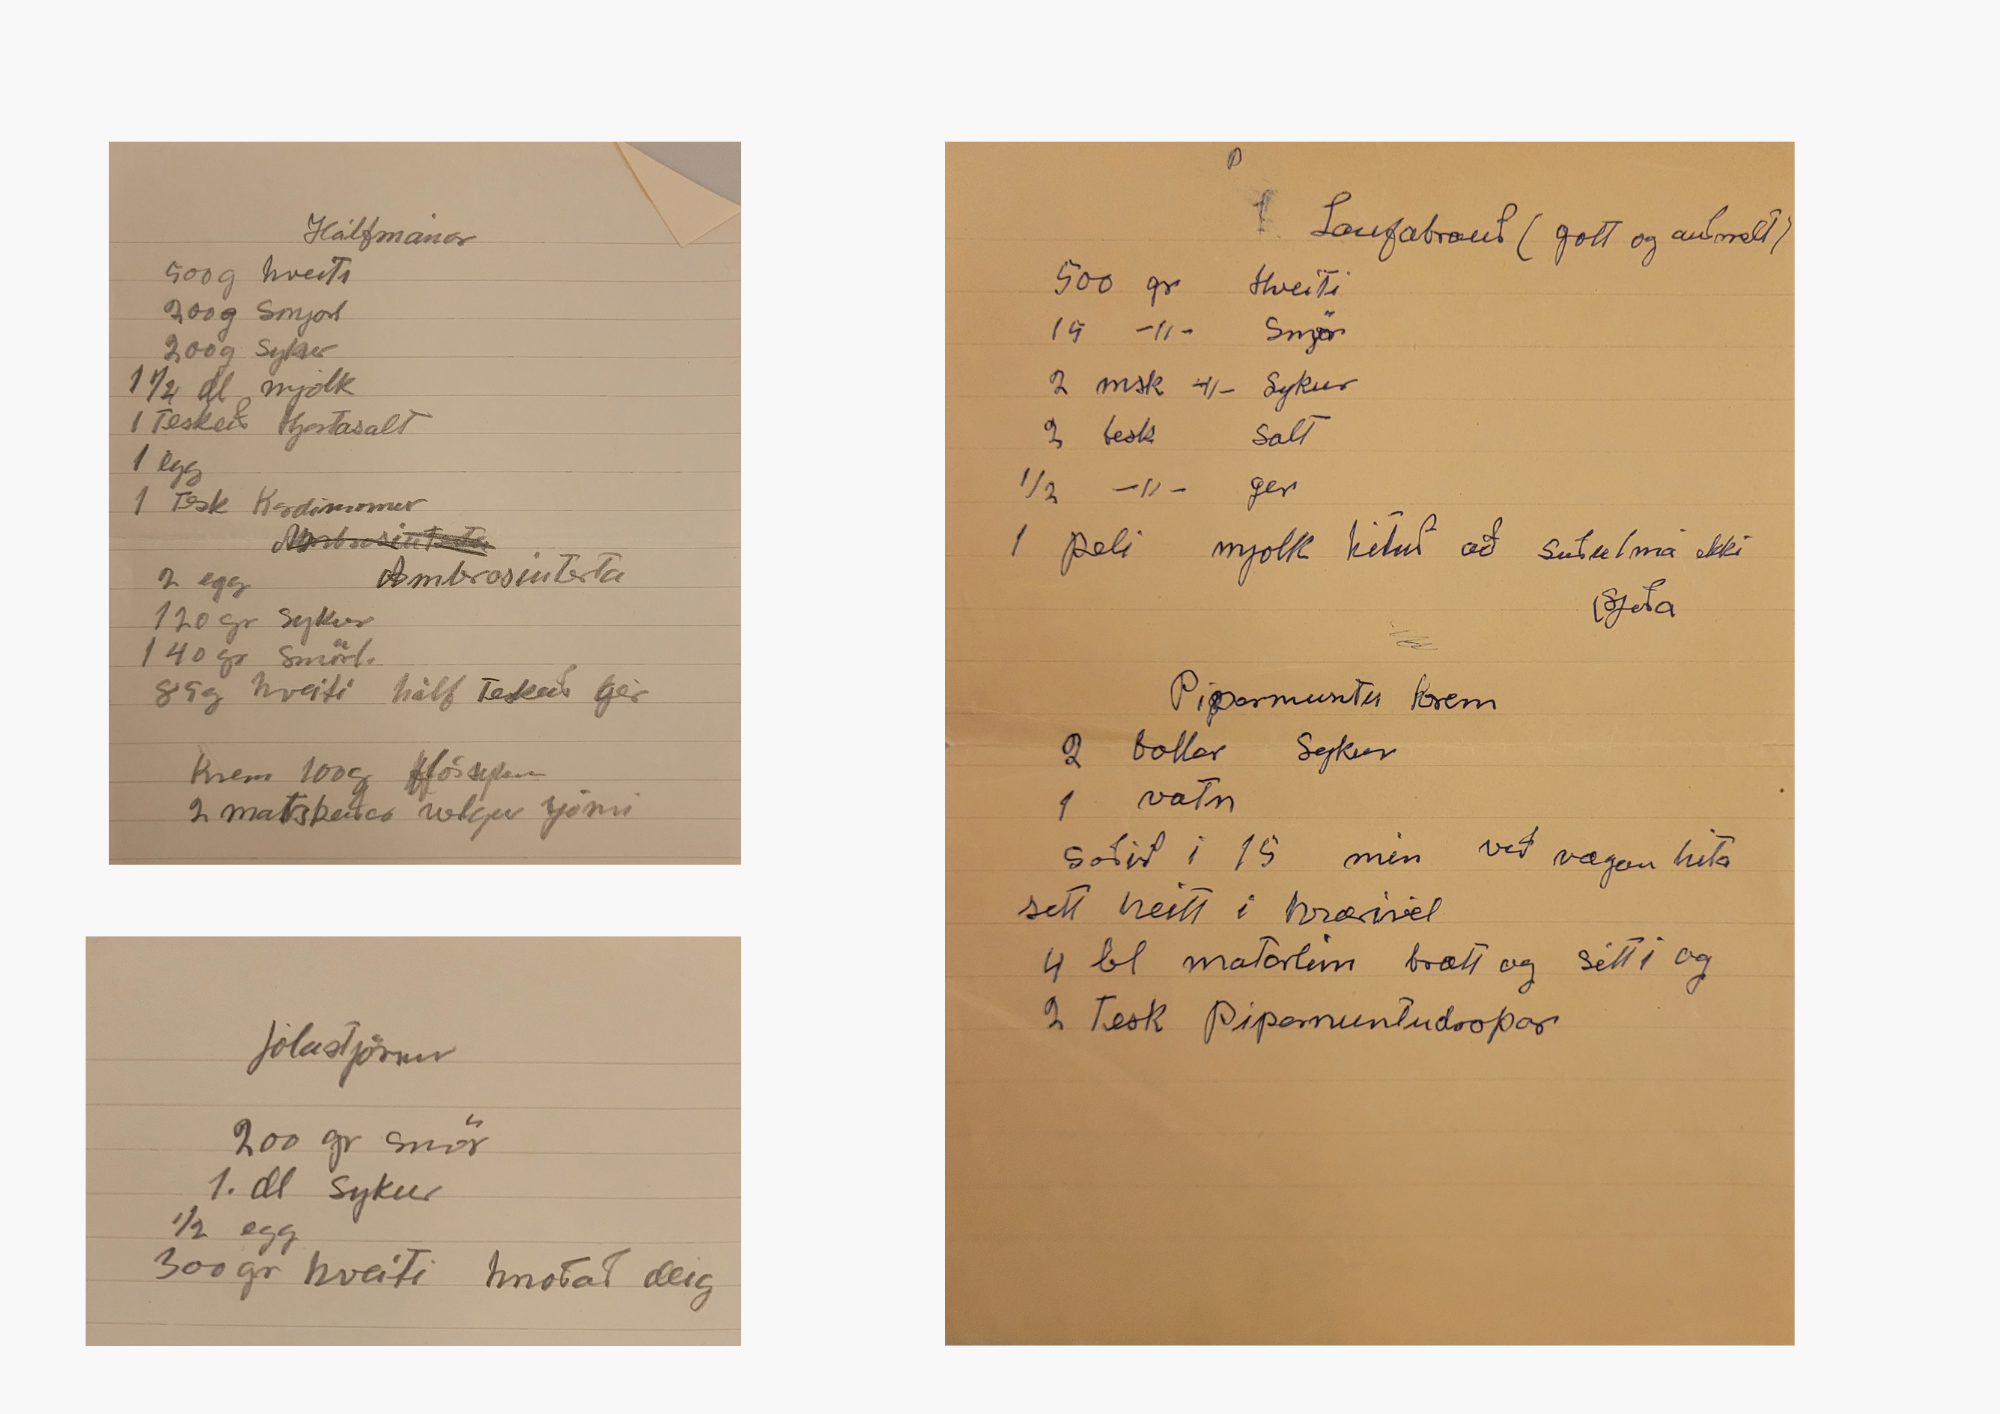 Hálfmánar
500g hveiti
200g Smjörl
200g Sykur
1 1/2 dl mjólk
1 Teskeið Hjartasalt
1 egg
1 Tesk Kardimomur
Ambrosiuterta
2 egg Ambrosiuterta
120 gr sykur
140 gr smörl.
85g hveiti hálf Teskeið Ger
Krem 100g flósykur
2 matskeiðar volgur rjómi
Jólastjörnur
200 gr smör
1. dl sykur
1/2 egg
300 gr hveiti hnoðað deig
Laufabrauð ( gott og auðvelt)
500 gr Hveiti
15 -11- Smjör
2 msk -11- Sykur
2 tesk Salt
1/2 -11- ger
1 peli mjolk hituð að suðu má ekki
(Sjóða
Pipermuntu krem
2 bollar Sykur
1 vatn
soðið i 15 min við vægan hita
sett heitt i hrærivél
4 bl matarlim brætt og sétt i og
2 Tesk Pipermuntudropar